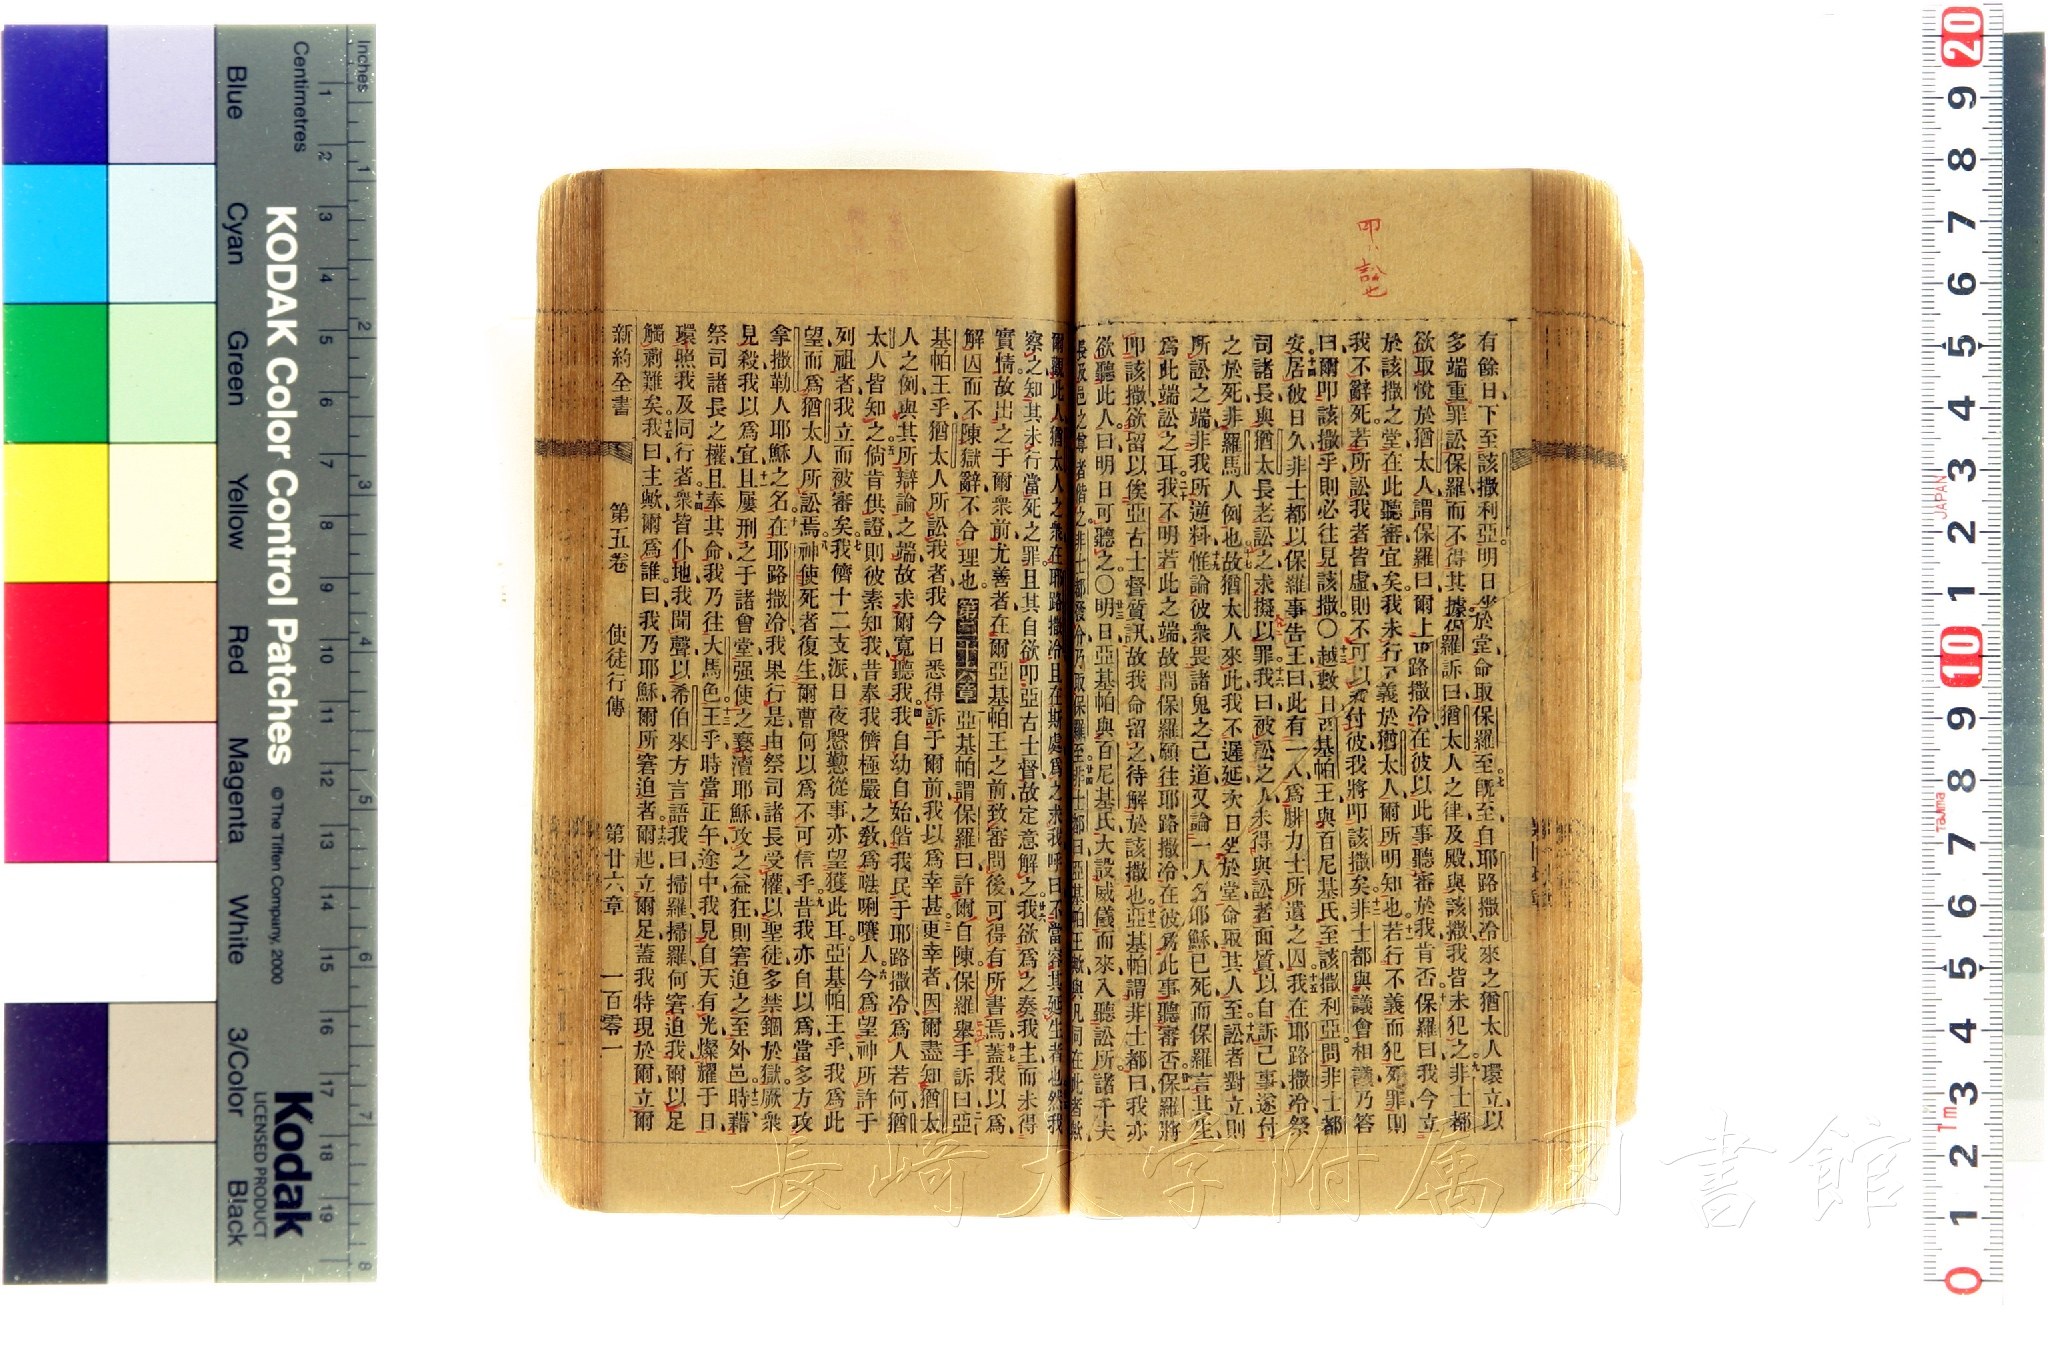 叩、訟也
有餘日下至該撒利亞明日坐於堂命取保羅至。既至自耶路撒冷來之猶太人環立以
多端重罪訟保羅而不得其據保羅訴曰猶太人之律及殿與該撒我皆未犯之非士都
欲取悅於猶太人謂保羅曰爾上耶路撒冷在彼以此事聽審於我肯否。保羅曰我今立
於該撒之堂在此聽審宜矣我未行不義於猶太人爾所明知也若行不義而犯死罪則
我不辭死若所訟我者皆虛則不可以我付彼我將叩該撒矣非士都與議會相議乃答
曰爾叩該撒乎則必往見該撒〇越數日亞基帕王與百尼基氏至該撒利亞問非士都
安居彼日久非士都以保羅事告王曰此有一人爲腓力士所遺之囚我在耶路撒冷祭
司諸長與猶太長老訟之求擬以罪我曰被訟之人未得與訟者面質以自訴己事遂付
之於死非羅馬人例也故猶太人來此我不遲延次日坐於堂命取其人至訟者對立則
所訟之端非我所逆料惟論彼衆畏諸鬼之己道又論一人名耶穌已死而保羅言其生
爲此端訟之耳我不明若此之端故問保羅願往耶路撒冷在彼爲此事聽審否保羅將
叩該撒欲留以俟亞古士督質訊故我命留之待解於該撒也亞基帕謂非士都曰我亦
欲聽此人曰明日可聽之〇明日亞基帕與百尼基氏大設威儀而來入聽訟所諸千夫
長及邑之尊者偕之非士都發令乃取保羅至非士都曰亞基帕王歟與凡同在此者歟
爾觀此人猶太人之衆在耶路撒冷且在斯處爲之求我呼曰不當容其延生者也然我
察之知其未行當死之罪且其自欲叩亞古士督故定意解之我欲爲之奏我主而未得
實情故出之于爾衆前尤善者在爾亞基帕王之前致審問後可得有所書焉蓋我以爲
解囚而不陳獄辭不合理也。第二十六章亞基帕謂保羅曰許爾自陳保羅舉手訴曰亞
基帕王乎猶太人所訟我者我今日悉得訴于爾前我以爲幸甚更幸者因爾盡知猶太
人之例與其所辯論之端故求爾寬聽我我自幼自始偕我民于耶路撒冷爲人若何猶
太人皆知之倘肯供證則彼素知我昔奉我儕極嚴之教爲𠵽唎㘔人今爲望神所許于
列祖者我立而被審矣我儕十二支派日夜慇懃從事亦望獲此耳亞基帕王乎我爲此
望而爲猶太人所訟焉神使死者復生爾曹何以爲不可信乎昔我亦自以爲當多方攻
拿撒勒人耶穌之名在耶路撒冷我果行是由祭司諸長受權以聖徒多禁錮於獄厥衆
見殺我以爲宜且屢刑之于諸會堂强使之褻瀆耶穌攻之益狂則窘迫之至外邑時藉
祭司諸長之權且奉其命我乃往大馬色王乎時當正午途中我見自天有光燦耀于日
環照我及同行者衆皆仆地我聞聲以希伯來方言語我曰掃羅掃羅何窘迫我爾以足
觸剌難矣我曰主歟爾爲誰曰我乃耶穌爾所窘迫者爾起立爾足蓋我特現於爾立爾
新約全書　第五卷　使徒行傳　第廿六章　一百零一
長崎大学附属図書館
Inches
Centimetres
KODAK Color Control Patches
© The Tiffen Company, 2000
Kodak
LICENSED PRODUCT
Blue Cyan Green Yellow Red Magenta White 3/Color Black
JAPAN
Tajima